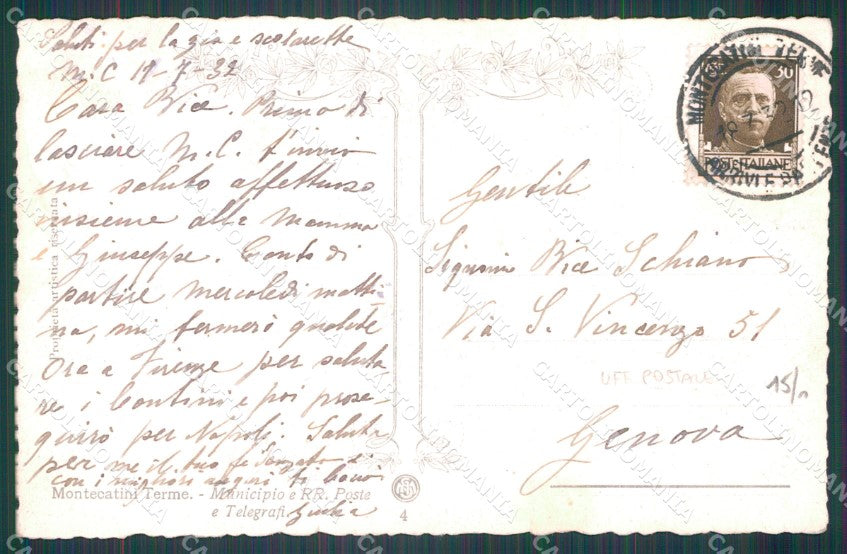 Saluti per la zia e
M. C 19-7-32
Cara Bice. Prima di
lasciare M. C. t'invio
un saluto affettuoso
insieme alla Mamma
e Giuseppe. Conto di
partire mercoledì matti-
na, mi fermerò qualche
Ora a Firenze per saluta
re i Contini e poi prose-
guirò per Napoli. Saluta
per me il tuo fidanzato e
con i migliori auguri ti bacio
Giulia
Montecatini Terme. - Municipio e RR. Poste
e Telegrafi
4
Proprietà artistica riservata
MONTECATINI TERME
30
POSTE ITALIANE
Gentile
Signorina Bice Schiano
Via S. Vincenzo 51
UFF POSTALE
15/-
Genova
CARTOLINOMANIA